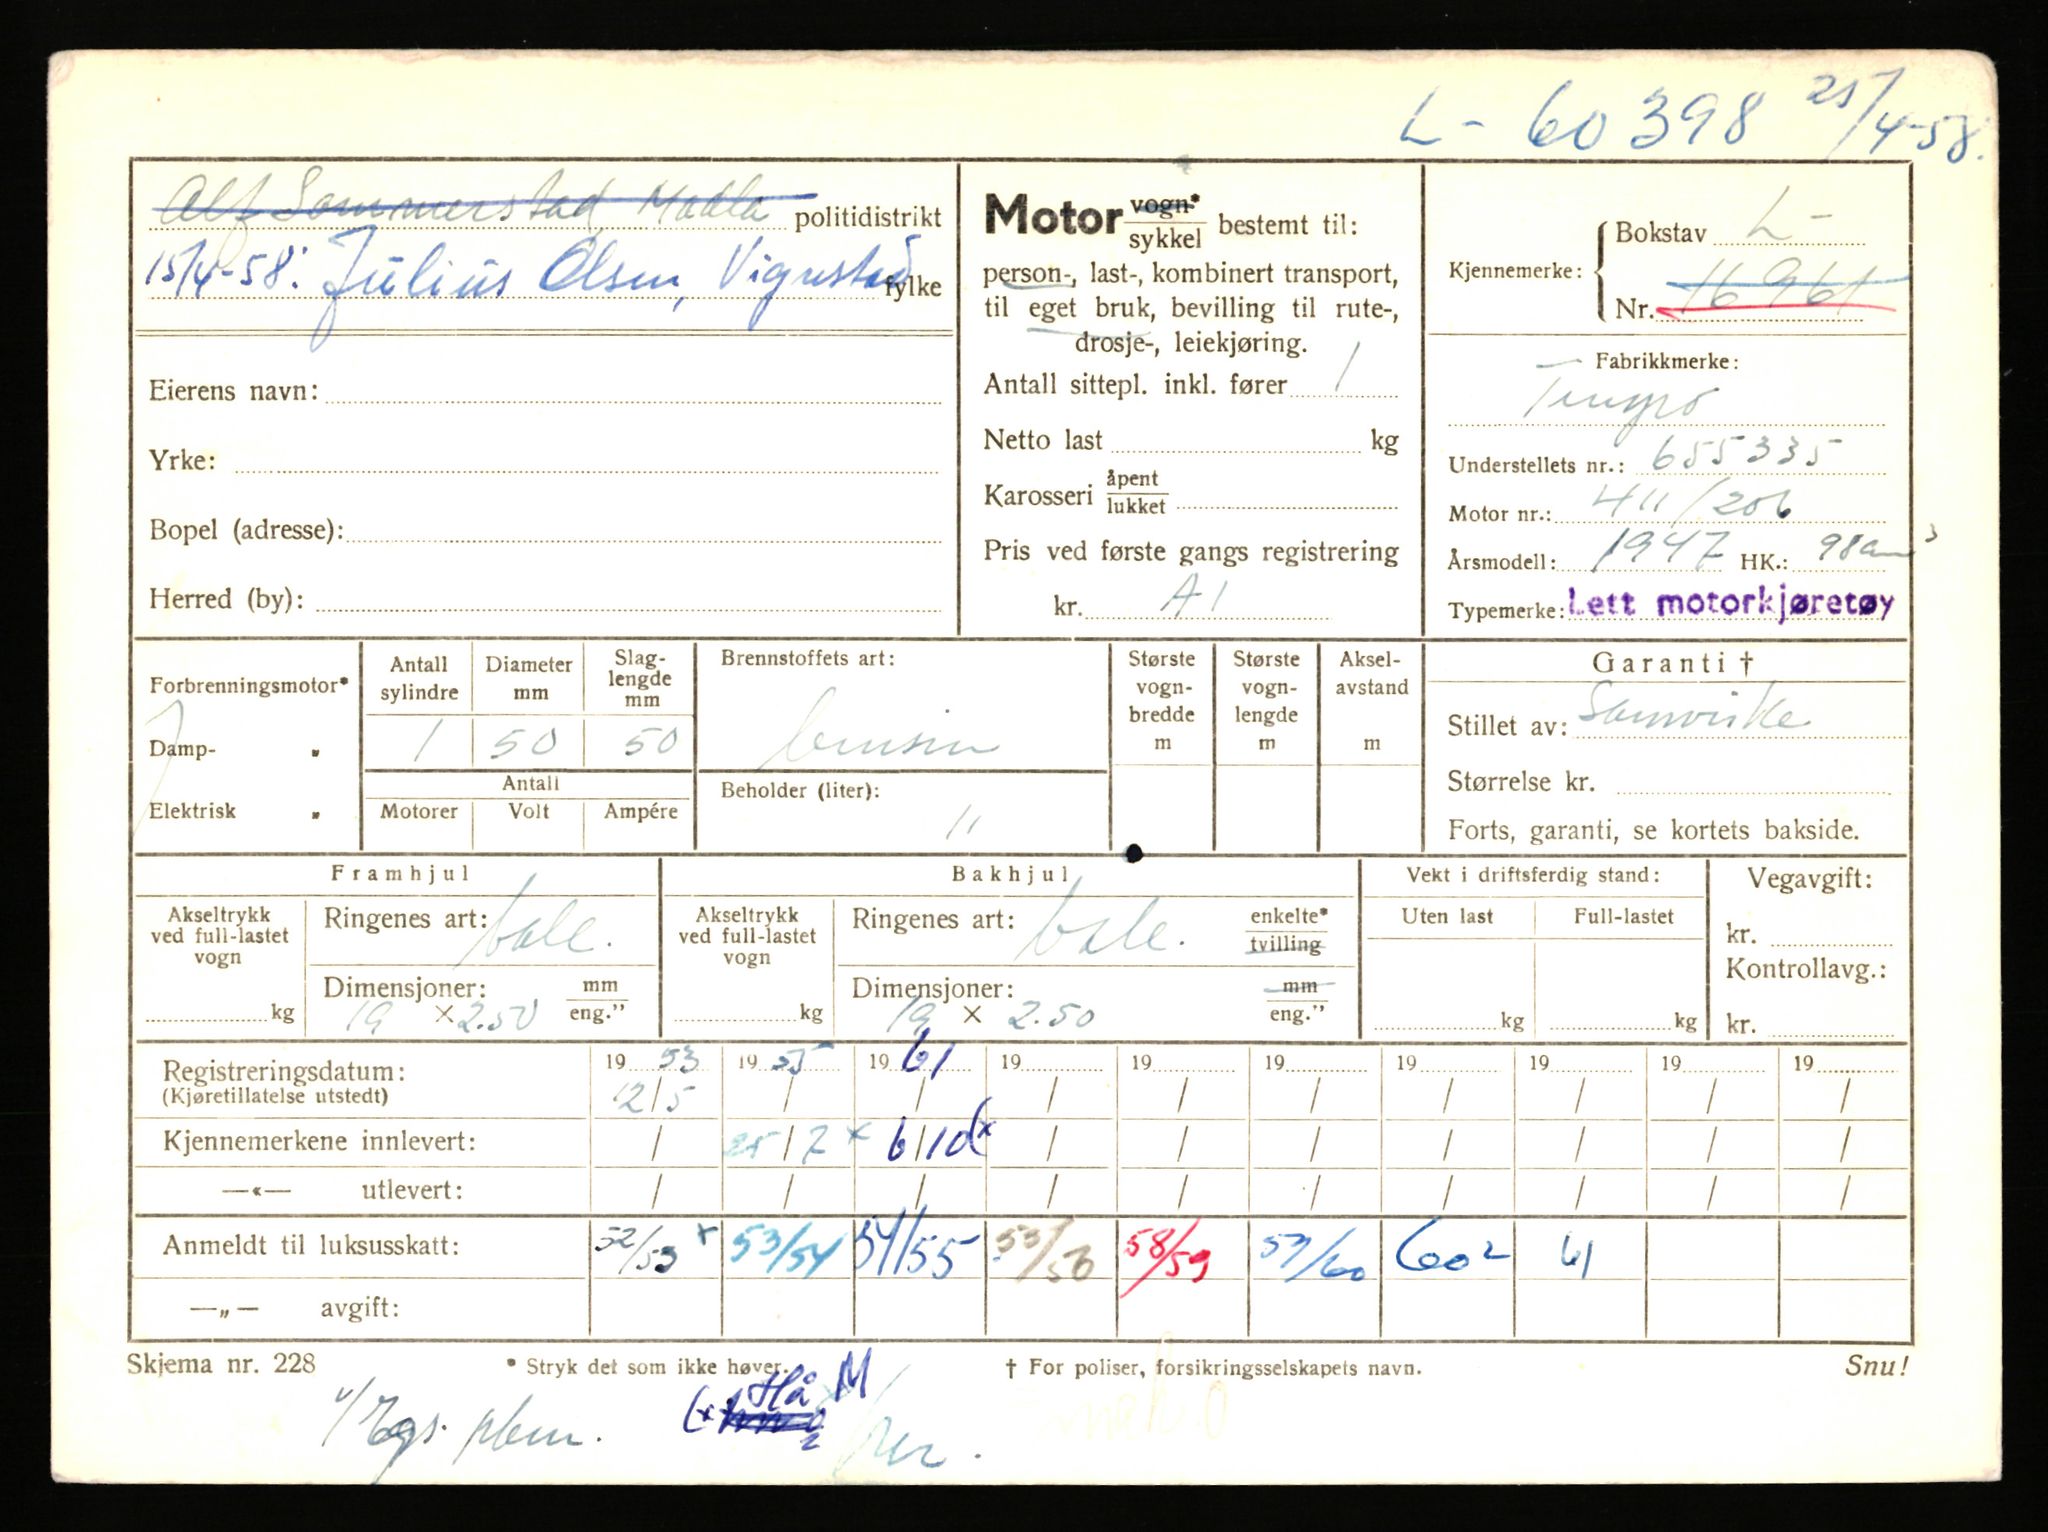 L - 60398 25/4-58.
Alf Sommerstad, Madla politidistrikt
15/4-58: Julius Olsen, Vigrestad fylke
Eierens navn:
Yrke:
Bopel (adresse):
Herred (by):
Motor vogn* / sykkel bestemt til:
person-, last-, kombinert transport,
til eget bruk, bevilling til rute-,
drosje-, leiekjøring.
Antall sittepl. inkl. fører 1
Netto last kg
Karosseri åpent / lukket
Pris ved første gangs registrering
kr. A1
Kjennemerke: Bokstav L-
Nr. 16961
Fabrikkmerke:
Tempo
Understellets nr.: 655335
Motor nr.: 411/206
Årsmodell: 1947 HK.: 98 cm3
Typemerke: Lett motorkjøretøy
Forbrenningsmotor*
Damp- „
Elektrisk „
Antall sylindre 1
Diameter mm 50
Slaglengde mm 50
Antall
Motorer Volt Ampére
Brennstoffets art:
bensin
Beholder (liter): 11
Største vognbredde m
Største vognlengde m
Akselavstand m
Garanti †
Stillet av: Samvirke
Størrelse kr.
Forts, garanti, se kortets bakside.
Framhjul
Akseltrykk ved full-lastet vogn
kg
Ringenes art:
Dimensjoner: mm / eng."
19 × 2.50
Bakhjul
Akseltrykk ved full-lastet vogn
kg
Ringenes art: enkelte* / tvilling
Dimensjoner: mm / eng."
19 × 2.50
Vekt i driftsferdig stand:
Uten last Full-lastet
kg kg
Vegavgift:
kr.
Kontrollavg.:
kr.
Registreringsdatum: 19 53 19 55 19 61 19 19 19 19 19 19 19
(Kjøretillatelse utstedt) 12/5 / / / / / / / / /
Kjennemerkene innlevert: / 25/7 x 6/10 (x / / / / / / /
—«— utlevert: / / / / / / / / / /
Anmeldt til luksusskatt: 52/53 x 53/54 54/55 53/56 58/59 59/60 60² 61
—„— avgift:
Skjema nr. 228 * Stryk det som ikke høver. † For poliser, forsikringsselskapets navn. Snu!
(x Hå M